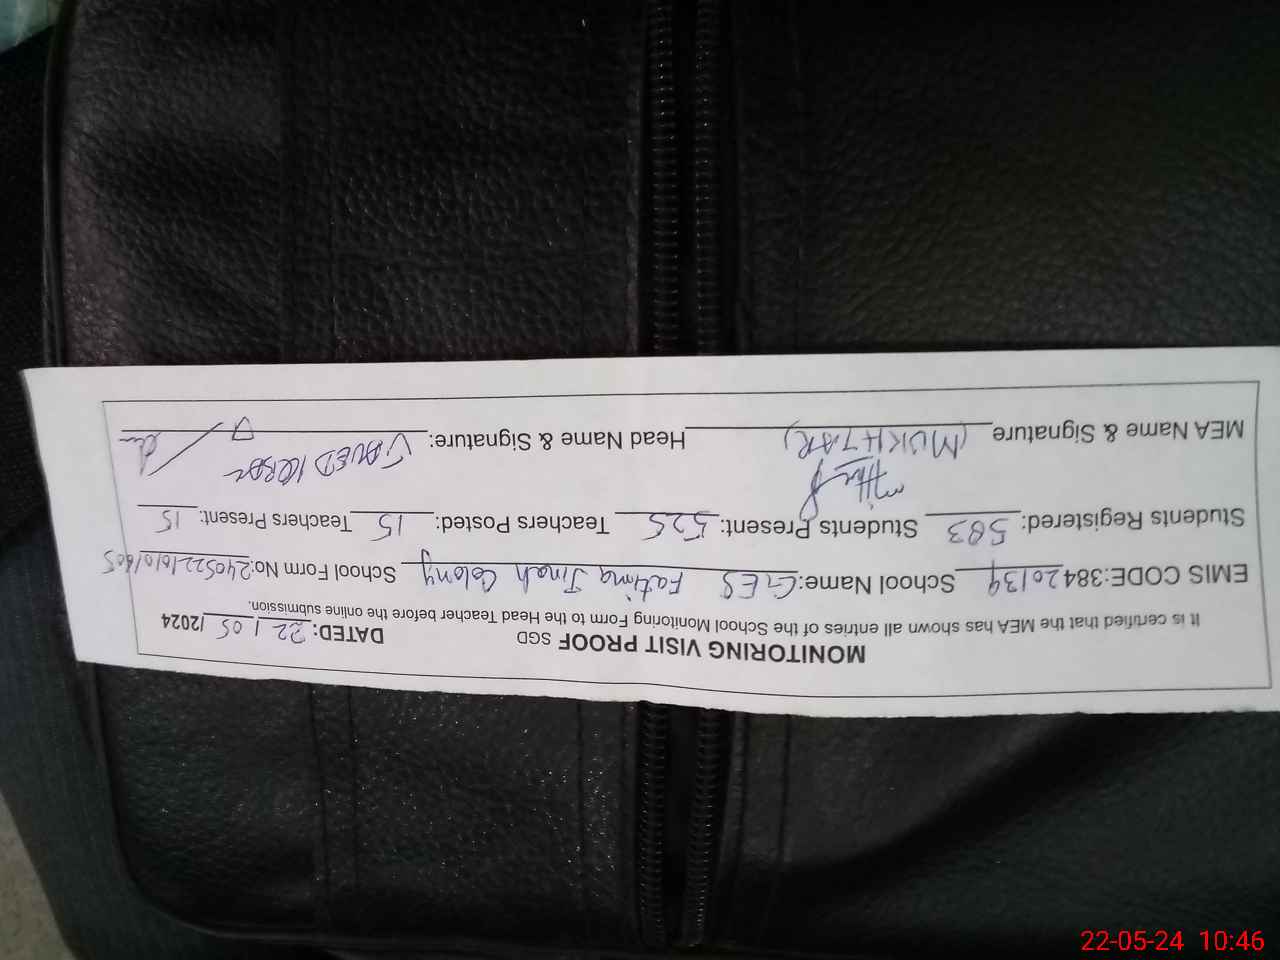 MONITORING VISIT PROOF SGD DATED: 22/05/2024
It is certified that the MEA has shown all entries of the School Monitoring Form to the Head Teacher before the online submission.
EMIS CODE:38420139 School Name: GES Fatima Jinah Colony School Form No:
Students Registered: 583 Students Present: 525 Teachers Posted: 15 Teachers Present: 15
MEA Name & Signature (MUKHTAR) Head Name & Signature: JAVED IQBAL
22-05-24 10:46